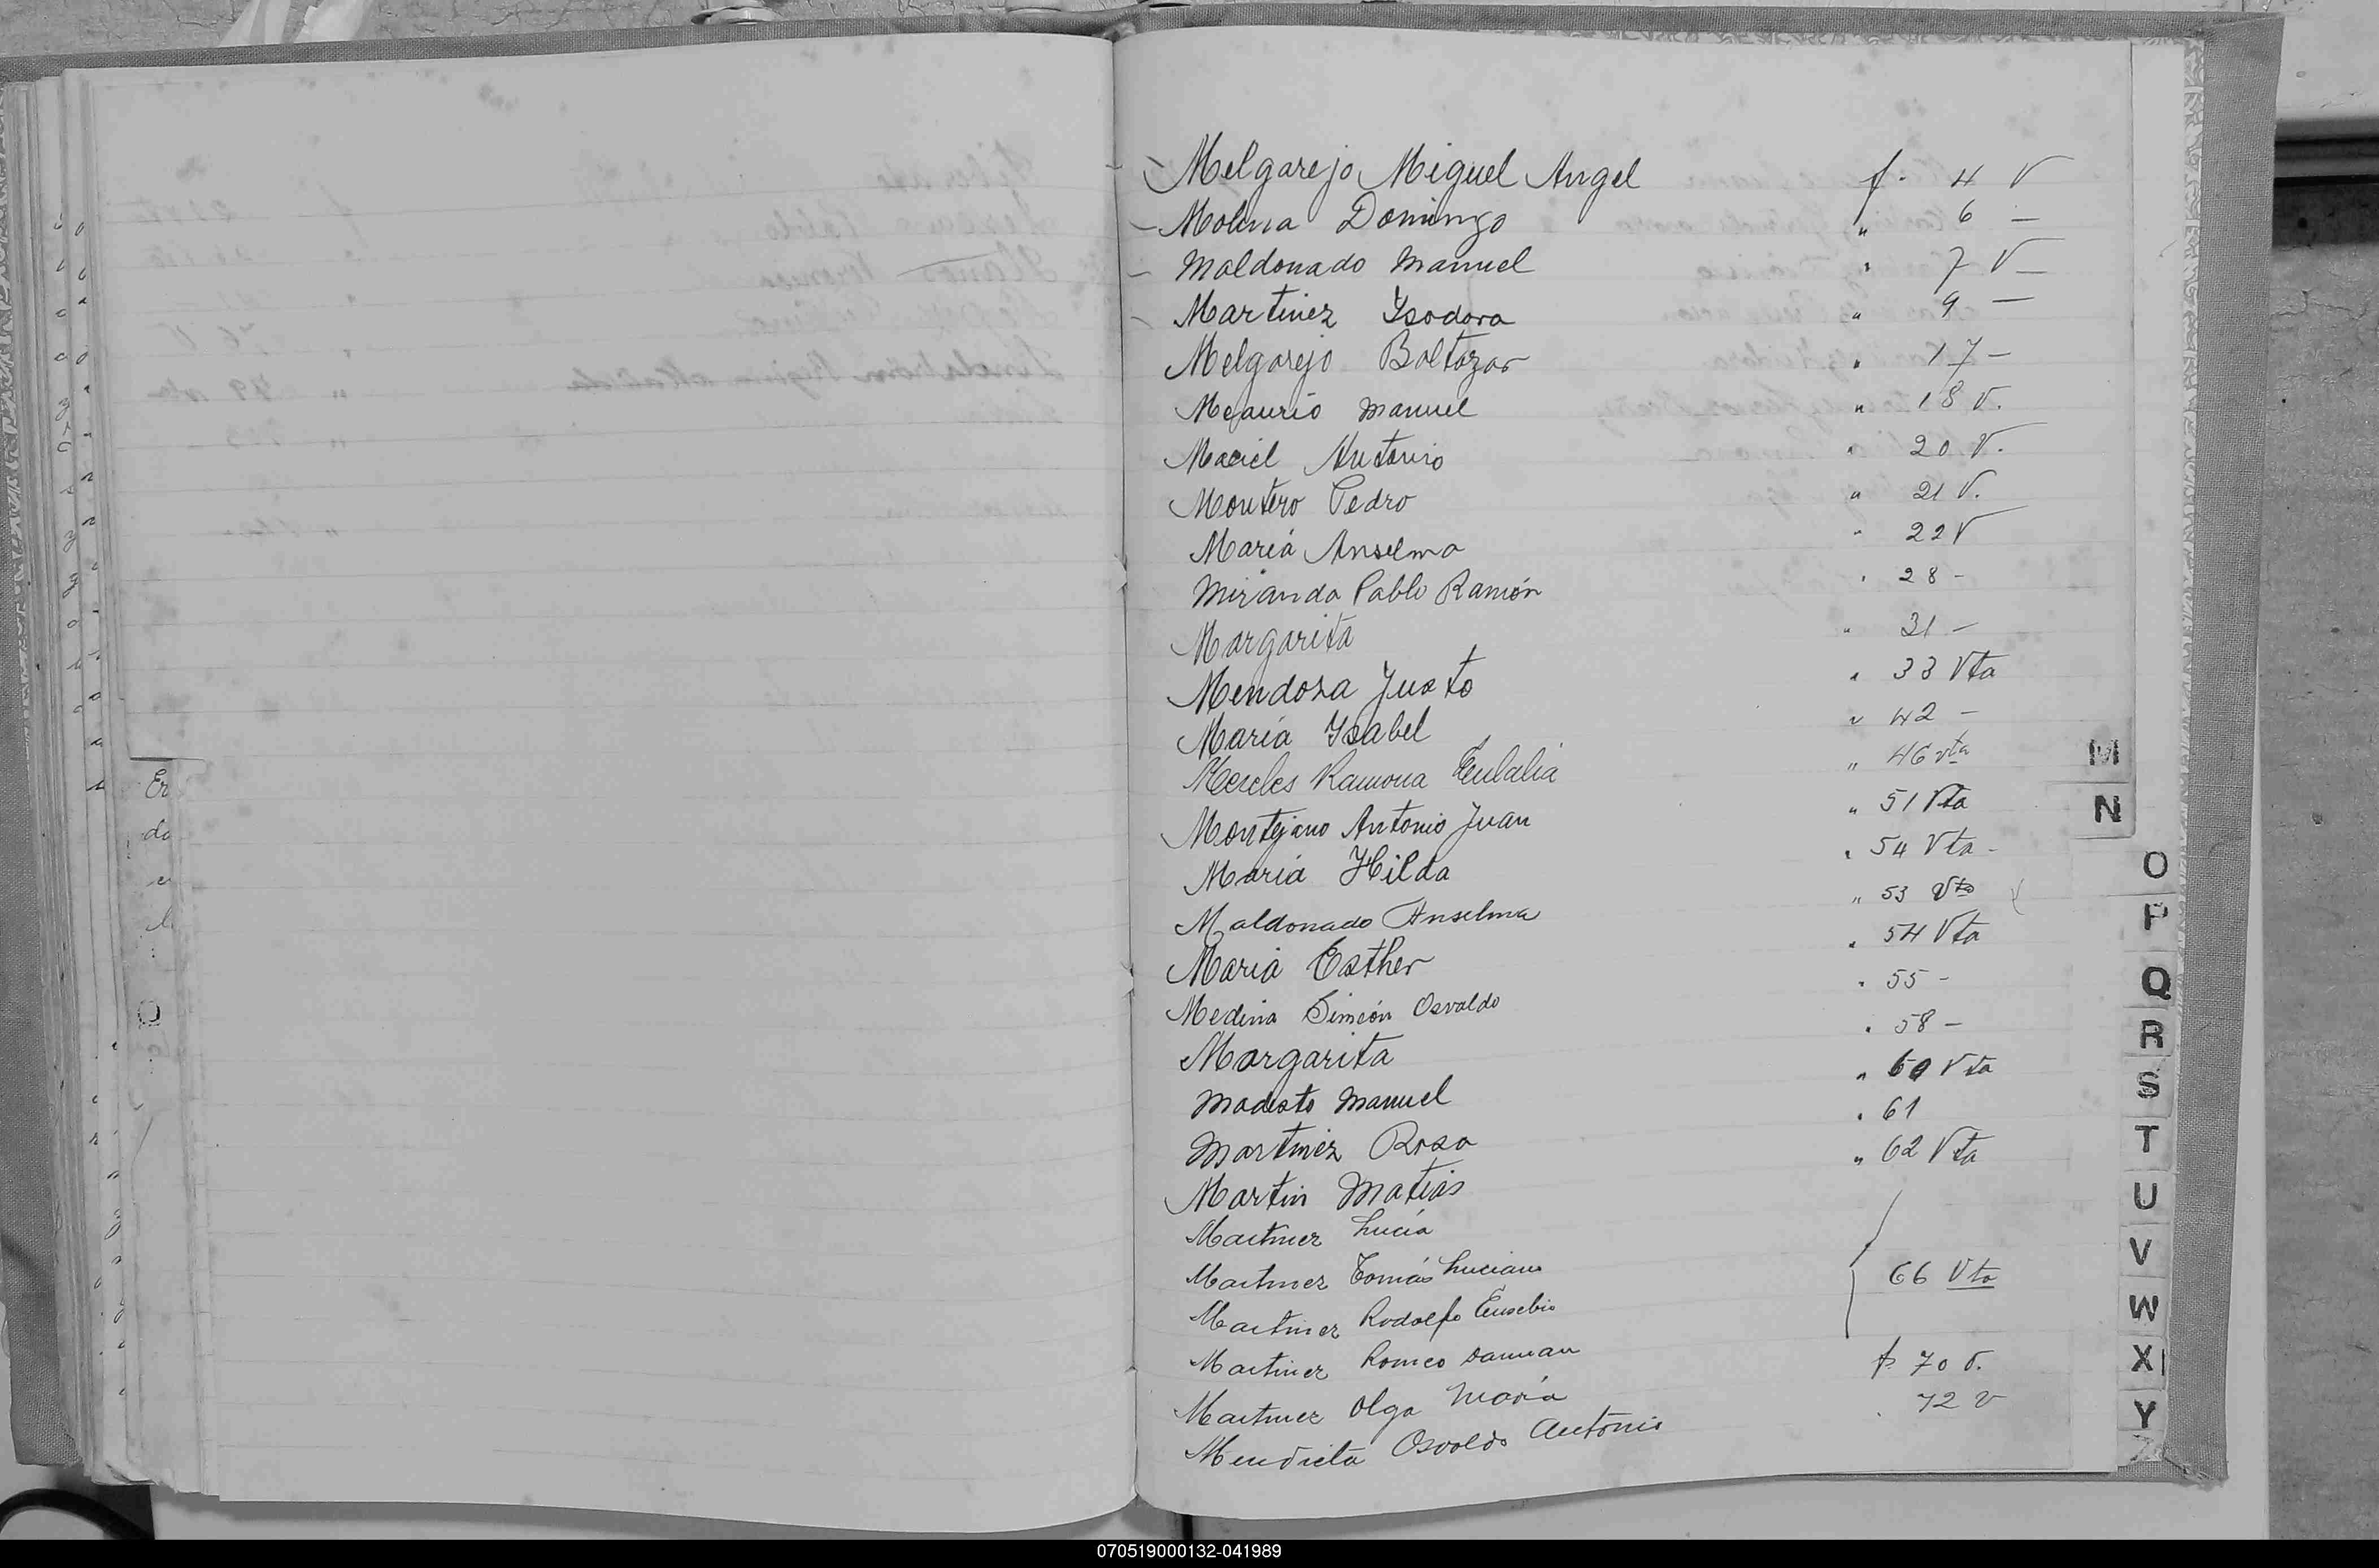 Melgarejo Miguel Angel f. 4 V
Molina Domingo " 6 —
Maldonado Manuel " 7 V —
Martinez Ysodora " 9 —
Melgarejo Baltazar " 17 —
Meaurio Manuel " 18 V.
Maciel Antonio " 20 V.
Montero Pedro " 21 V.
María Anselma " 22 V
Miranda Pablo Ramón " 28 -
Margarita " 31 -
Mendoza Justo " 33 Vta
María Ysabel " 42 -
Ramona Eulalia " 46 vta
Montejano Antonio Juan " 51 Vta
María Hilda " 54 Vta -
Maldonado Anselma " 53 Vto
María Esther " 54 Vta
Medina Simeón Osvaldo " 55 -
Margarita " 58 -
Modesto Manuel " 60 Vta
Martinez Rosa " 61
Martin Matías " 62 Vta
Martinez Lucía
Martinez Tomás Luciano 66 Vto
Martinez Rodolfo Eusebio
Martinez Romeo Damian
Martinez Olga María 70 V.
Mendieta Osvaldo Antonio 72 V
M
N
O
P
Q
R
S
T
U
V
W
X
Y
Z
070519000132-041989